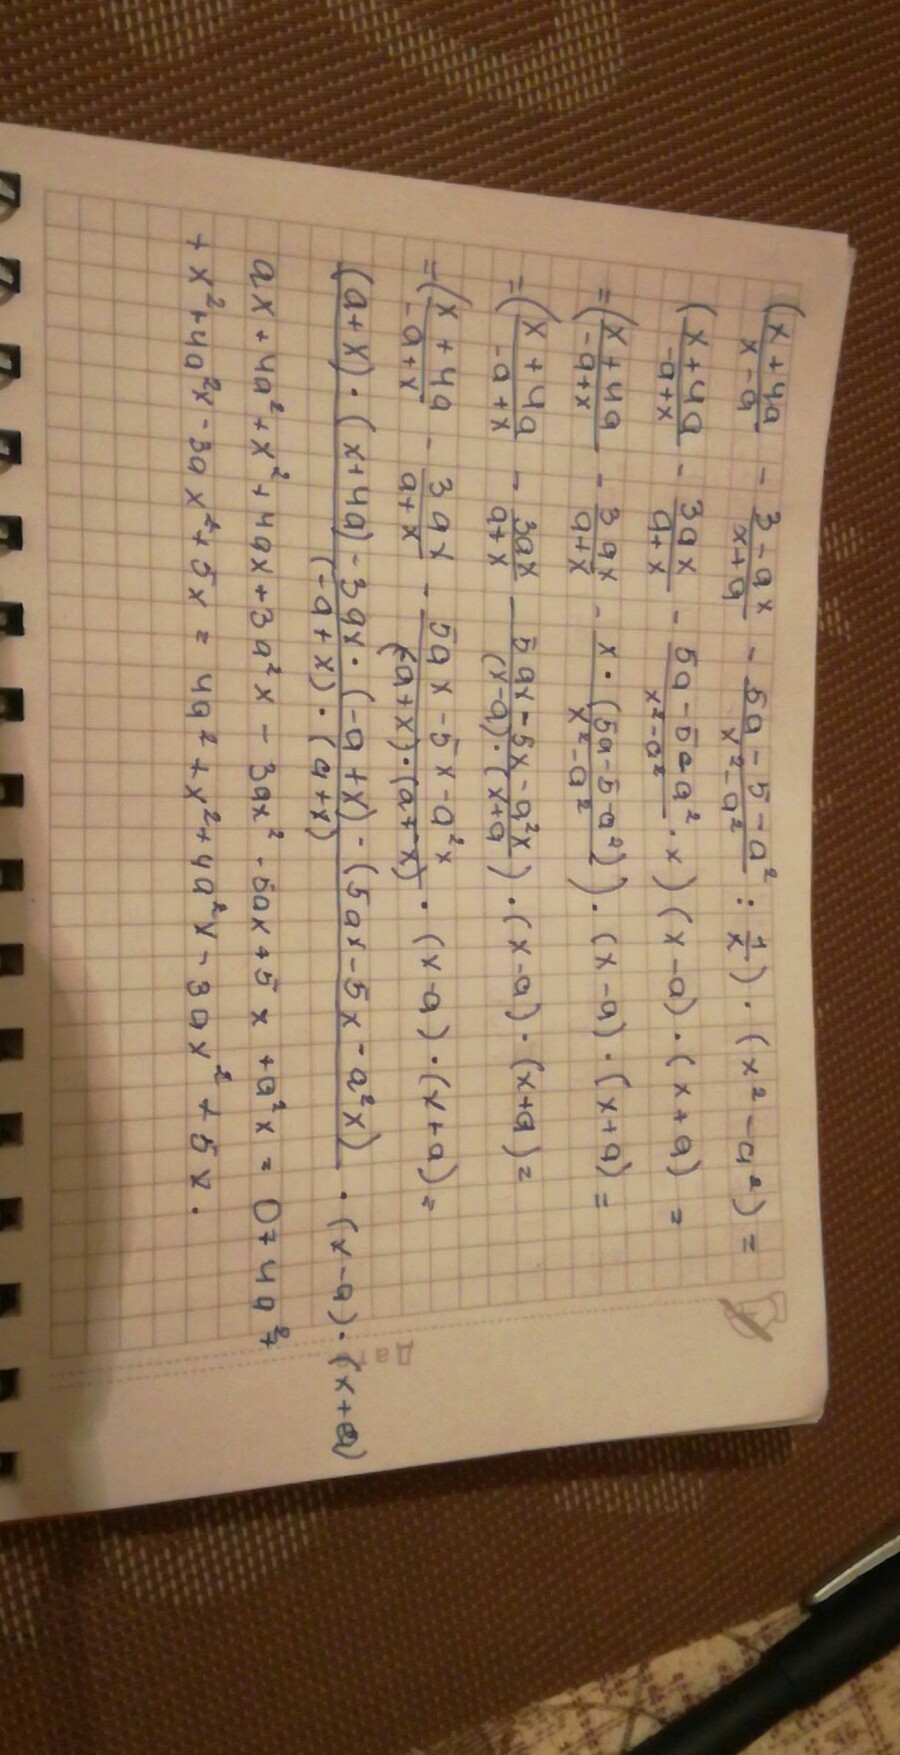 (x+4a/x-a - 3-ax/x+a - 5a-5-a²/x²-a² : 1/x) · (x²-a²) =
(x+4a/-a+x - 3ax/a+x - 5a-5-a²/x²-a² · x) (x-a)·(x+a) =
=(x+4a/-a+x - 3ax/a+x - x·(5a-5-a²)/x²-a²) · (x-a)·(x+a) =
=(x+4a/-a+x - 3ax/a+x - 5ax-5x-a²x/(x-a)·(x+a)) · (x-a)·(x+a) =
=(x+4a/-a+x - 3ax/a+x - 5ax-5x-a²x/(-a+x)·(a+x)) · (x-a)·(x+a) =
(a+x)·(x+4a)-3ax·(-a+x)-(5ax-5x-a²x)/(-a+x)·(a+x) · (x-a)·(x+a)
ax+4a²+x²+4ax+3a²x-3ax²-5ax+5x+a²x = 0+4a²+
+x²+4a²x-3ax²+5x = 4a²+x²+4a²x-3ax²+5x.
Дат